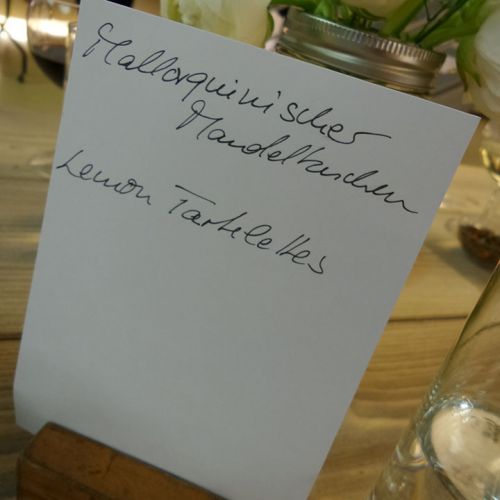 Mallorquinischer
Mandelkuchen
Lemon Tartelettes